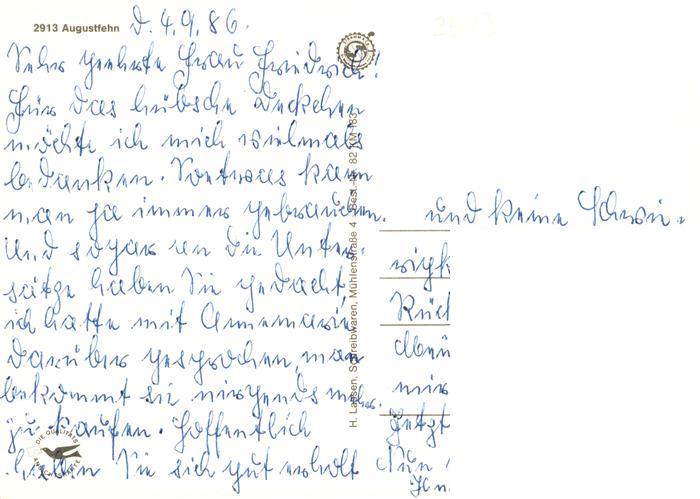 2913 Augustfehn d. 4.9.86.
Sehr geehrte Frau Friedrich!
Für das hübsche Deckchen
möchte ich mich vielmals
bedanken. Sowtwas kann
man ja immer gebrauchen.
Und sogar an die Unter-
sätze haben Sie gedacht,
ich hatte mit Annemarie
darüber gesprochen, man
bekommt sie nirgends mehr
zu kaufen. Hoffentlich
haben Sie sich gut erholt
und keine Schwie-
rigk
Rück
mir
Jetzt
Nun
H. Lassen, Schreibwaren, Mühlenstraße 4 Best.-Nr. 82 KM 183
DIE QUALITÄTS
ANSICHTSKARTE